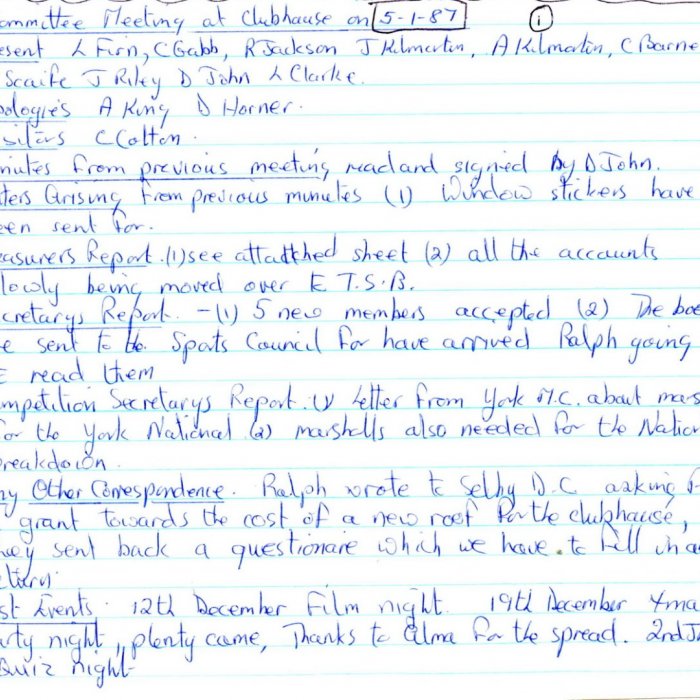 ommittee Meeting at Clubhouse on 5-1-87 (i)
esent L Firn, C Gabb, R Jackson J Kilmartin, A Kilmartin, C Barne
Scaife J Riley D John L Clarke.
pologies A King D Horner.
isitors C Colton.
inutes from previous meeting read and signed By D John.
tters Arising from previous minutes (1) Window stickers have
een sent for.
easurers Report. (1) see attatthed sheet (2) all the accounts
lowly being moved over to T.S.B.
ecretarys Report. - (1) 5 new members accepted (2) The boo
e sent to the Sports Council for have arrived Ralph going
read them
ompetition Secretarys Report. (1) Letter from York M.C. about mars
for the York National (2) marshalls also needed for the Nation
reakdown.
ny Other Correspondence. Ralph wrote to Selby D.C asking f
grant towards the cost of a new roof for the clubhouse,
hey sent back a questionaire which we have to fill in a
eturn.
st Events. 12th December Film night. 19th December Xma
arty night, plenty came, Thanks to Alma for the spread. 2nd J
Quiz night